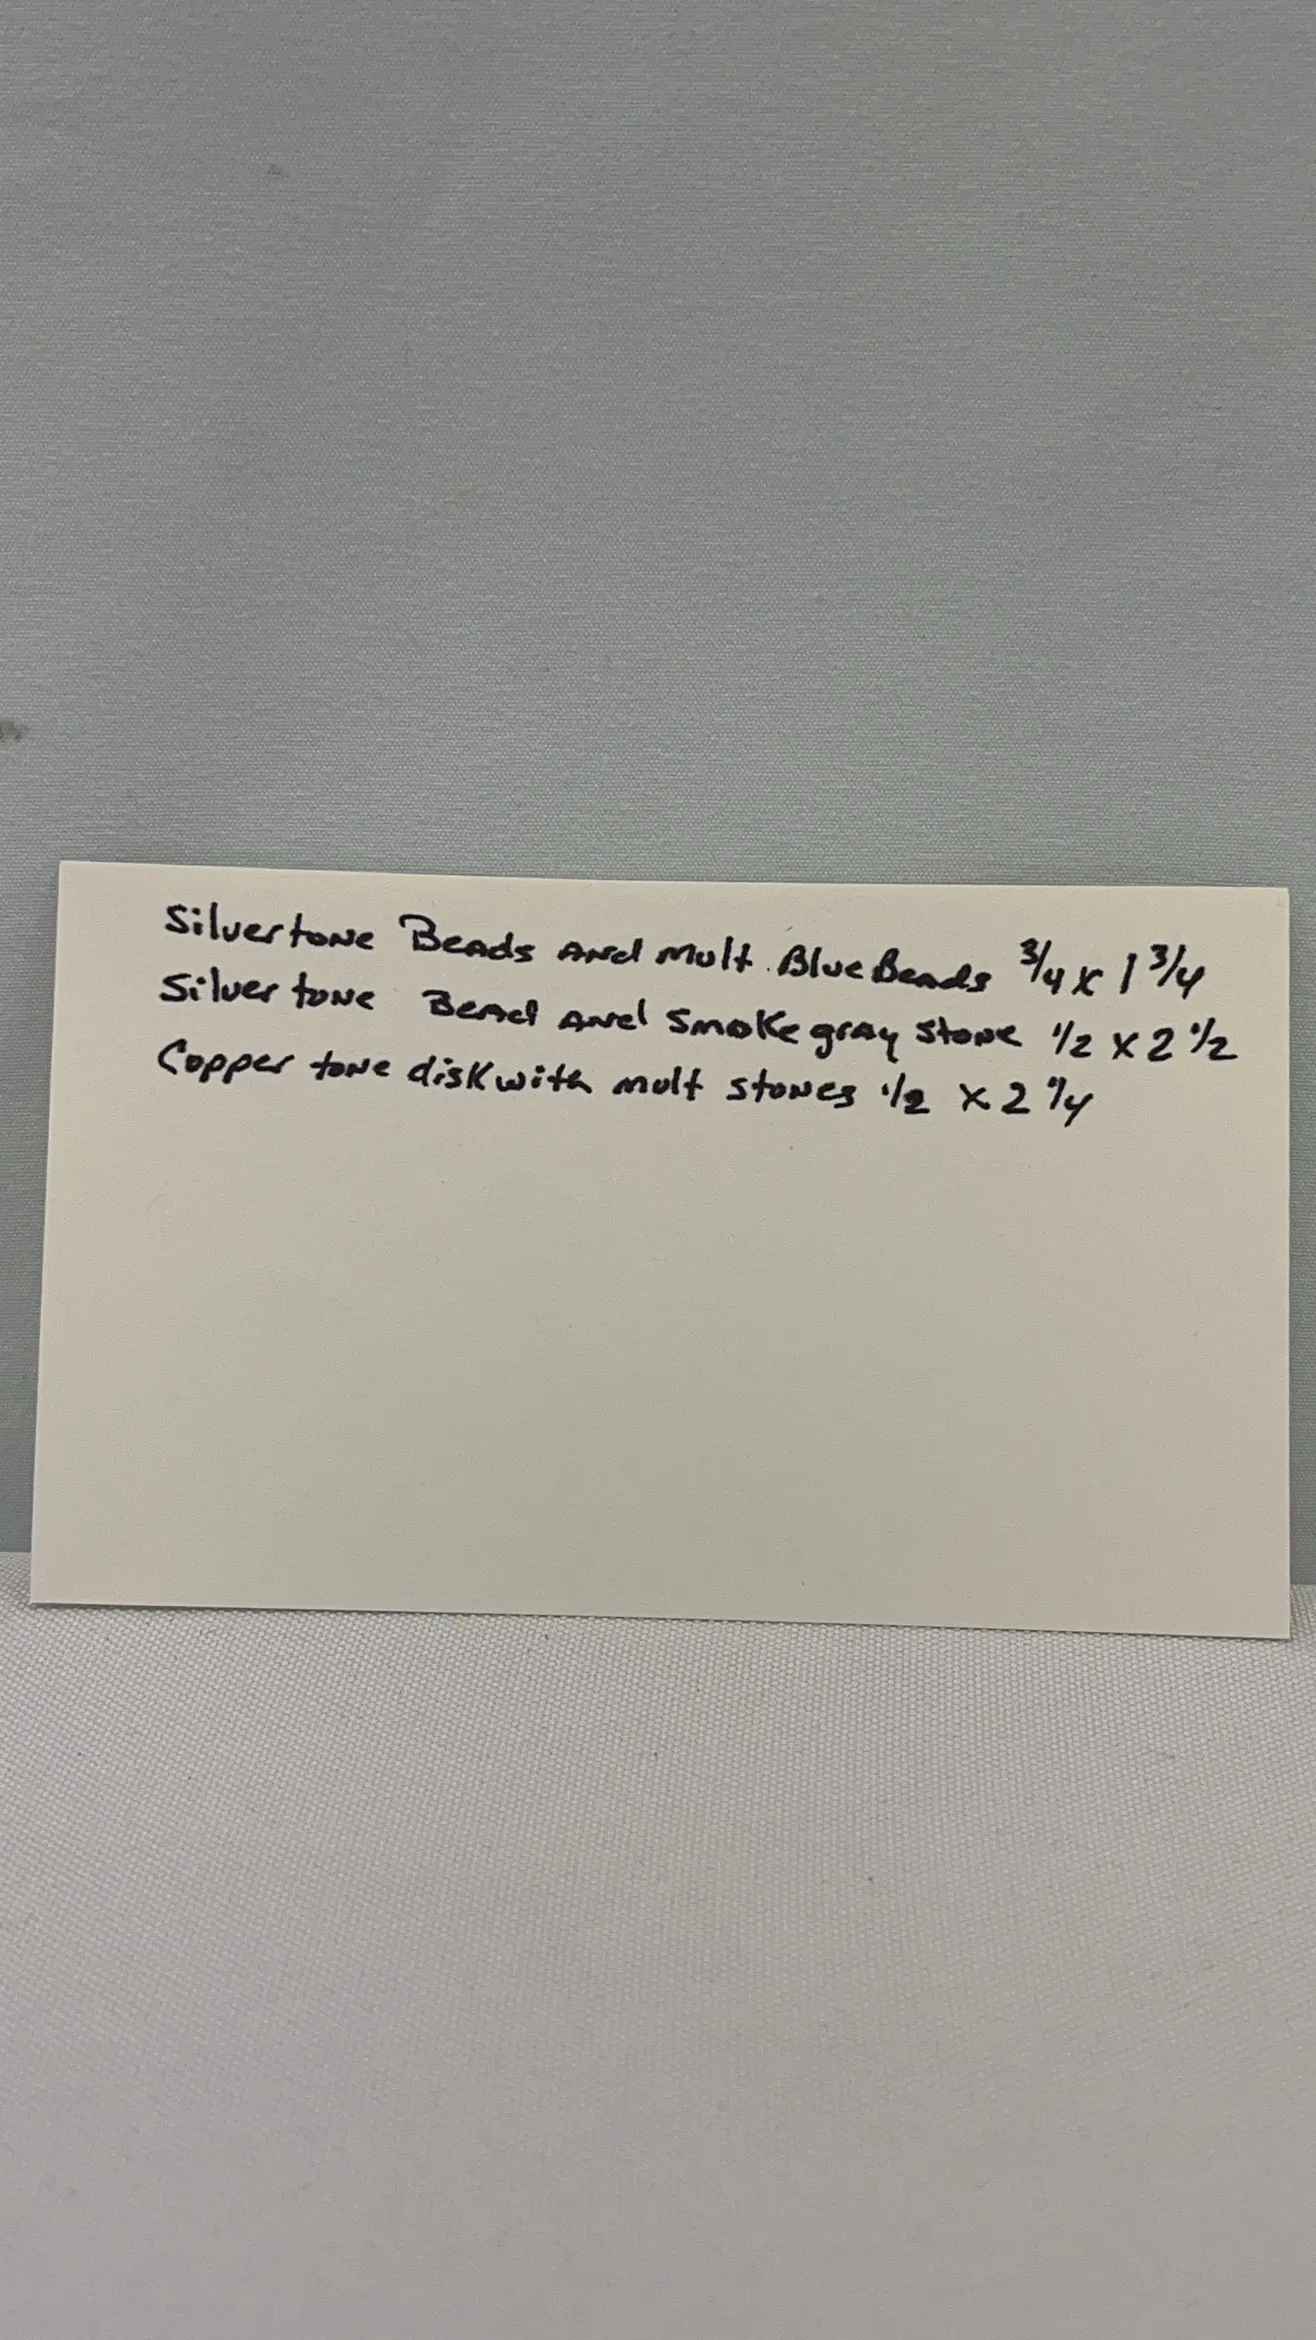 Silvertone Beads And Mult. Blue Beads 3/4 x 1 3/4
Silver tone Bead And Smoke gray stone 1/2 x 2 1/2
Copper tone disk with mult stones 1/2 x 2 1/4